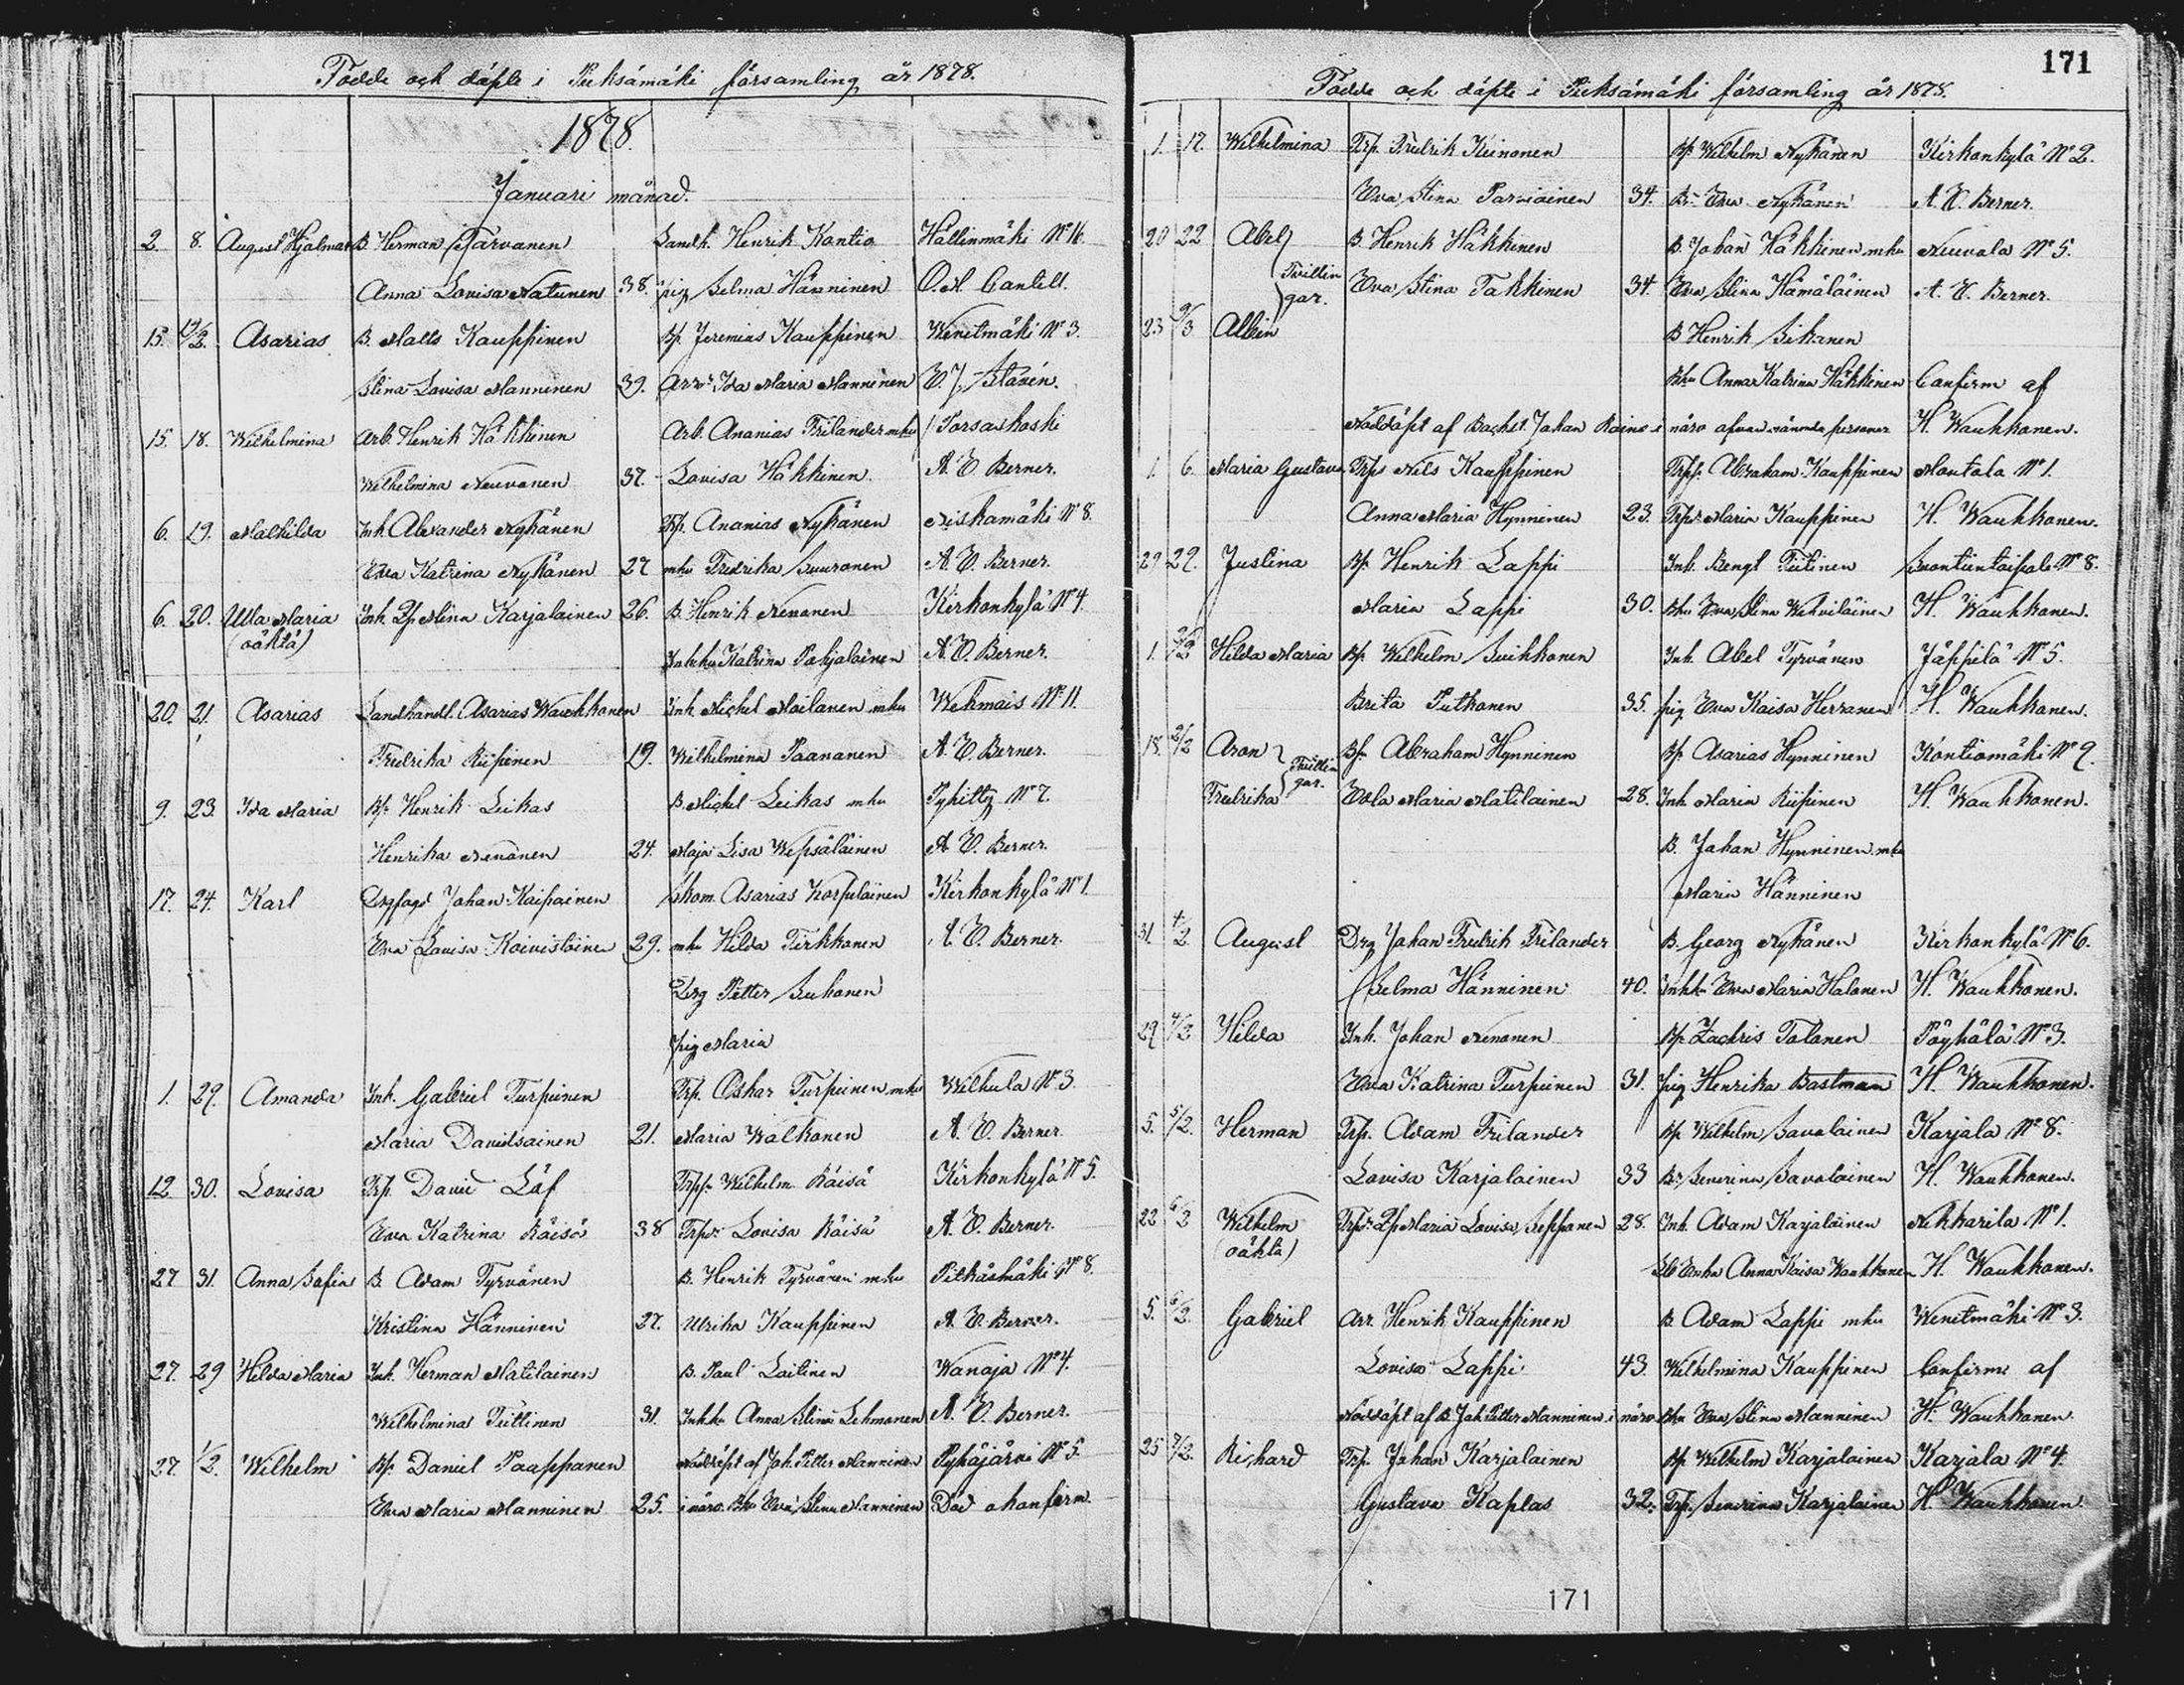 Födde och döpte i Pieksämäki församling år 1878.
1878.
Januari månad.
2. 8. August Hjalmar B. Herman Tarvanen Landh. Henrik Kontio Hällinmäki No 16.
Anna Lovisa Natunen 38. pig Selma Hänninen O. M. Cantell.
15. 19/2. Asarias B. Matts Kauppinen Bp. Jeremias Kauppinen Wenetmäki No 3.
Stina Lovisa Manninen 39. Arr:r Ida Maria Manninen E. J. Stavén.
15. 18. Wilhelmina Arb. Henrik Häkkinen Arb. Ananias Frilander mhu Porsaskoski
Wilhelmina Neuvonen 37. Lovisa Häkkinen A. E. Berner.
6. 19. Mathilda Inh. Alexander Nykänen Trp. Ananias Nykänen Niskamäki No 8.
Edla Katrina Nykänen 27 mhu Fredrika Suuronen A. E. Berner.
6. 20. Ulla Maria Inh. Df. Stina Karjalainen 26. B. Henrik Nenonen Kirkonkylä No 4.
(oäkta) Inhhu Katrina Pahjalainen A. E. Berner.
20. 21. Asarias Landhandl. Asarias Wauhkonen Inh. Michel Moilanen mhu Wehmais No 11.
Fredrika Riipinen 19. Wilhelmina Paananen A. E. Berner.
9. 23. Ida Maria Bp. Henrik Leikas B. Michel Leikas mhu Pykitty No 7.
Henrika Nenonen 24. Maja Lisa Wepsäläinen A. E. Berner.
17. 24. Karl Johan Kaipainen Skom. Asarias Korpulainen Kirkonkylä No 1.
Eva Lovisa Koivistoinen 29. mhu Hilda Pirkkonen A. E. Berner.
Drg Petter Suhonen
pig Maria
1. 27. Amanda Inh. Gabriel Turpeinen Trp. Oskar Turpeinen mhu Wilhula No 3.
Maria Davidsainen 21. Maria Walkonen A. E. Berner.
12. 30. Lovisa Trp. David Löf Trpp. Wilhelm Räisä Kirkonkylä No 5.
Eva Katrina Räisä 38 Trpdr Lovisa Räisä A. E. Berner.
27. 31. Anna Sofia B. Adam Tyrvänen B. Henrik Tyrvänen mhu Pitkäsmäki No 8.
Kristina Hänninen 27. Ulrika Kauppinen A. E. Berner.
27. 29 Hilda Maria Inh. Herman Matilainen B. Paul Laitinen Wanaja No 4.
Wilhelmina Tiittinen 31. Inhhu Anna Stina Lehmonen A. E. Berner.
27. 1/2. Wilhelm Bp. Daniel Paappanen Nöddöpt af Joh. Petter Manninen Pyhäjärvi No 5.
Eva Maria Manninen 25. i närv. Bhu Eva Stina Manninen Död okonfirm.
171
Födde och döpte i Pieksämäki församling år 1878.
1. 17. Wilhelmina Trp. Fredrik Keinonen Bp. Wilhelm Nykänen Kirkonkylä No 2.
Eva Stina Parviainen 34. Bdr Eva Nykänen A. E. Berner.
20 22 Abel B. Henrik Häkkinen B. Johan Häkkinen mhu Neuvola No 5.
Tvillingar. Eva Stina Takkinen 34. Eva Stina Hämäläinen A. E. Berner.
23 9/3 Albin B Henrik Sikanen
Bhu Anna Katrina Häkkinen Confirm af
Nöddöpt af Bachst. Johan Roino i närv. af ofvannämnda personer H. Wauhkonen.
1. 6. Maria Gustava Trps Nils Kauppinen Trpp. Abraham Kauppinen Montola No 1.
Anna Maria Hynninen 23. Trpdr Maria Kauppinen H. Wauhkonen.
29 29. Justina Bp. Henrik Lappi Inh. Bengt Tiitinen Suontientaipale No 8.
Maria Lappi 30. Bhu Eva Stina Wehviläinen H. Wauhkonen.
1. 2/2 Hilda Maria Bp. Wilhelm Suikkonen Inh. Abel Tyrvänen Jäppilä No 5.
Brita Putkonen 35. pig Eva Kaisa Herranen H. Wauhkonen.
18. 2/2 Aron Bp. Abraham Hynninen Bp. Asarias Hynninen Kontiomäki No 9.
Fredrika Tvillingar. Edla Maria Matilainen 28. Inh. Maria Riipinen H. Wauhkonen.
B. Johan Hynninen mhu
Maria Hänninen
31. 4/2 August Drg Johan Fredrik Frilander B. Georg Nykänen Kirkonkylä No 6.
Selma Hänninen 40. Inhhu Eva Maria Halonen H. Wauhkonen.
29 4/2 Hilda Inh. Johan Nenonen Bp. Zachris Tolanen Pöyhölä No 3.
Eva Katrina Turpeinen 31. pig Henrika Bastman H. Wauhkonen.
5. 5/2. Herman Trp. Adam Frilander Bp. Wilhelm Savolainen Karjala No 8.
Lovisa Karjalainen 33 Bdr Severina Savolainen H. Wauhkonen.
22 6/2 Wilhelm Trpdr Df. Maria Lovisa Seppänen 28. Inh. Adam Karjalainen Nikkarila No 1.
(oäkta) Anna Kaisa Wauhkonen H. Wauhkonen.
5. 6/2. Gabriel Arr. Henrik Kauppinen B. Adam Lappi mhu Wenetmäki No 3.
Lovisa Lappi 43. Wilhelmina Kauppinen Confirm af
Nöddöpt af B. Joh. Petter Manninen i närv. Bhu Eva Stina Manninen H. Wauhkonen.
25 7/2. Richard Trp. Johan Karjalainen Bp. Wilhelm Karjalainen Karjala No 4.
Gustava Kaplas 32. Trp. Severina Karjalainen H. Wauhkonen.
171